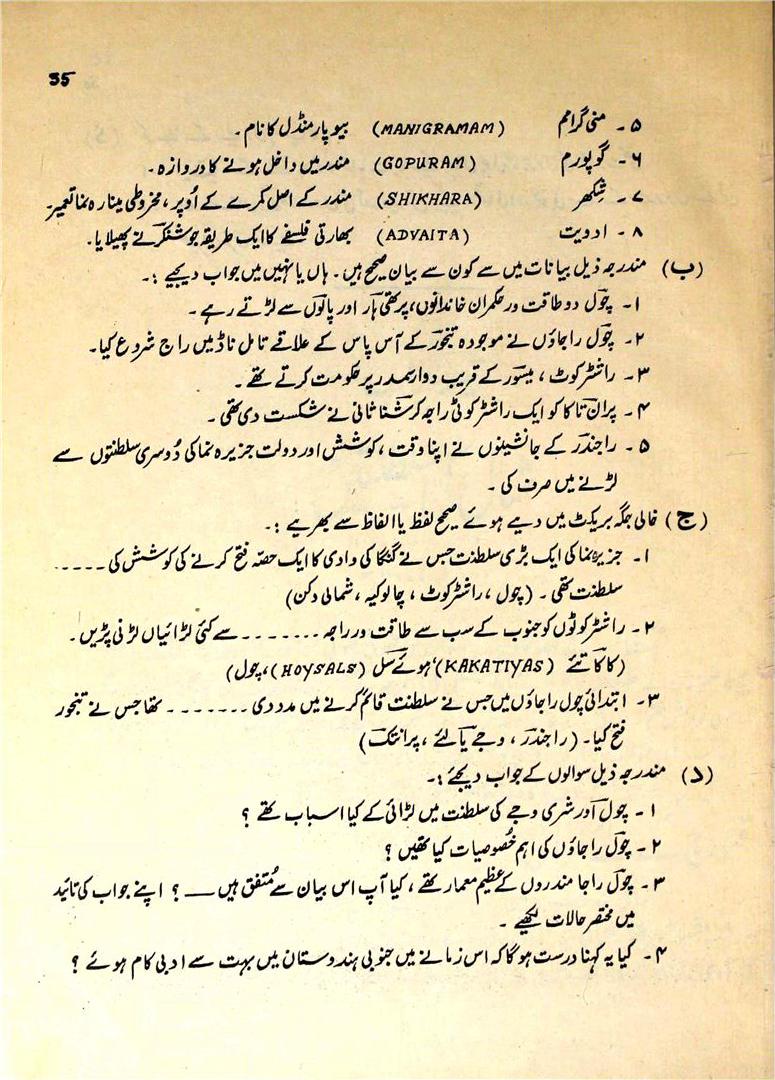 35
۵ ۔ منی گرامم (MANIGRAMAM) بیوپار منڈل کا نام ۔
۶ ۔ گوپورم (GOPURAM) مندر میں داخل ہونے کا دروازہ ۔
۷ ۔ شِکھر (SHIKHARA) مندر کے اصل کمرے کے اُوپر ، مخروطی مینارہ نما تعمیر ۔
۸ ۔ ادویت (ADVAITA) بھارتی فلسفے کا ایک طریقہ جو شنکر نے پھیلایا ۔
(ب) مندرجہ ذیل بیانات میں سے کون سے بیان صحیح ہیں ۔ ہاں یا نہیں میں جواب دیجیے :۔
۱ ۔ چول دو طاقت ور حکمران خاندانوں، پرتھی ہار اور پالوں سے لڑتے رہے ۔
۲ ۔ چول راجاؤں نے موجودہ تنجور کے آس پاس کے علاقے تامل ناڈ میں راج شروع کیا ۔
۳ ۔ راشٹر کوٹ ، میسور کے قریب دوار سمدر پر حکومت کرتے تھے ۔
۴ ۔ پران تاکا کو ایک راشٹر کوٹی راجہ کرشنا ثانی نے شکست دی تھی ۔
۵ ۔ راجندر کے جانشینوں نے اپنا وقت ، کوشش اور دولت جزیرہ نما کی دُوسری سلطنتوں سے
لڑنے میں صرف کی ۔
(ج) خالی جگہ بریکٹ میں دیے ہوئے صحیح لفظ یا الفاظ سے بھریے :۔
۱ ۔ جزیرہ نما کی ایک بڑی سلطنت جس نے گنگا کی وادی کا ایک حصّہ فتح کرنے کی کوشش کی ۔۔۔۔۔
سلطنت تھی ۔ (چول ، راشٹر کوٹ ، چالوکیہ ، شمالی دکن)
۲ ۔ راشٹر کوٹوں کو جنوب کے سب سے طاقت ور راجہ ۔۔۔۔۔۔۔ سے کئی لڑائیاں لڑنی پڑیں ۔
(کاکاتئے (KAKATIYAS)، ہوئے سل (HOYSALS)، چول)
۳ ۔ ابتدائی چول راجاؤں میں جس نے سلطنت قائم کرنے میں مدد دی ۔۔۔۔۔۔۔ تھا جس نے تنجور
فتح کیا ۔ (راجندر ، وجے یالئے ، پرانتک)
(د) مندرجہ ذیل سوالوں کے جواب دیجئے :۔
۱ ۔ چول اور شری وجے کی سلطنت میں لڑائی کے کیا اسباب تھے ؟
۲ ۔ چول راجاؤں کی اہم خُصوصیات کیا تھیں ؟
۳ ۔ چول راجا مندروں کے عظیم معمار تھے ، کیا آپ اس بیان سے مُتفق ہیں — ؟ اپنے جواب کی تائید
میں مختصر حالات لکھیے ۔
۴ ۔ کیا یہ کہنا درست ہوگا کہ اس زمانے میں جنوبی ہندوستان میں بہت سے ادبی کام ہوئے ؟